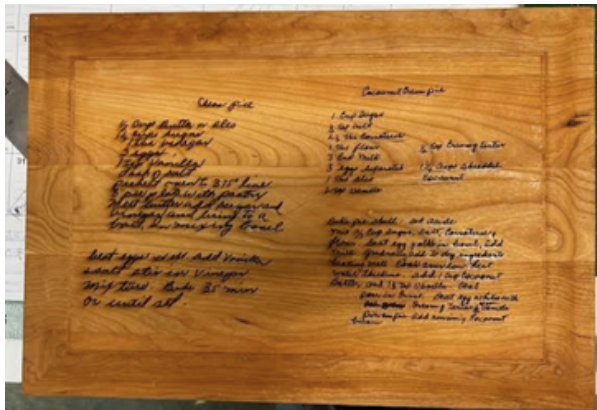 Chess pie
½ cup butter or oleo
1½ cups sugar
1 Tbs vinegar
3 eggs
1 tsp vanilla
dash of salt
preheat oven to 375° line
pie plate with pastry
Melt butter add sugar and
vinegar and bring to a
boil, in mixing bowl
beat eggs well. Add vanilla
salt stir in vinegar
mixture. Bake 35 min
or until set.
Coconut Cream pie
1 Cup Sugar
tsp salt
Tbs Cornstarch
1 Tbs flour
3 Cup Milk
3 eggs separated
1 Tbs oleo
2 tsp vanilla
¼ tsp Cream of tartar
1½ Cups shredded
Coconut
Bake pie shell. Set aside
Mix Cup sugar, salt, Cornstarch &
flour beat egg yolks in bowl, add
milk gradually add to dry ingredients
Cook over low heat
until thickens. Add 1 cup Coconut
Butter, and 1½ tsp vanilla. Cool
pour in crust. Beat egg whites with
Cream of Tartar
pie add remaining Coconut